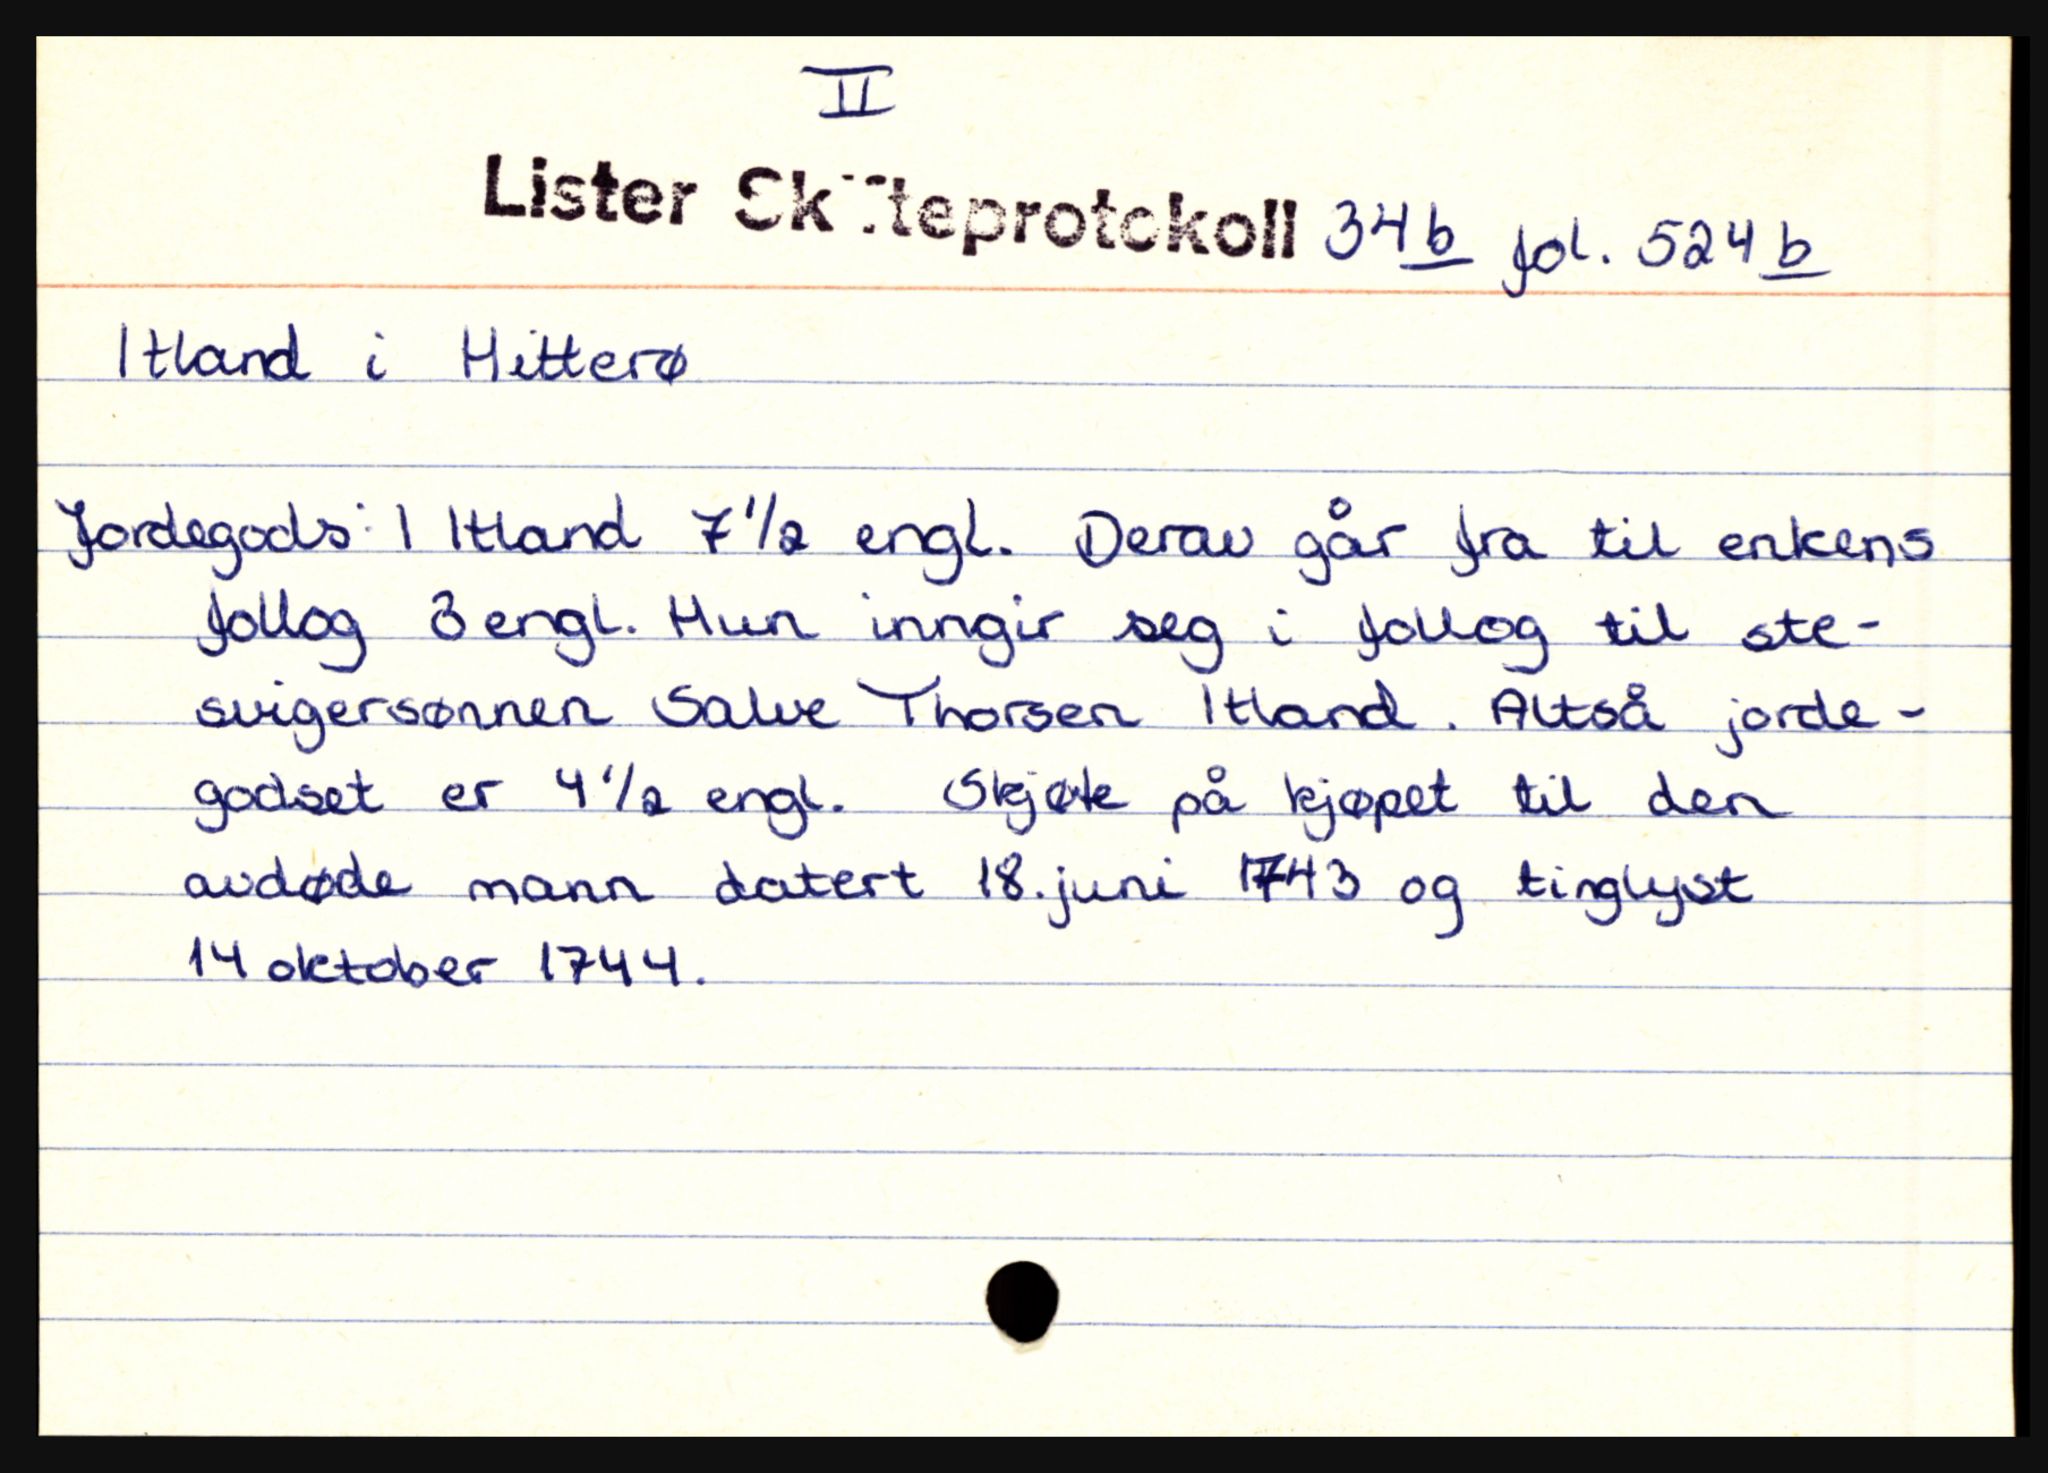 II
Lister Skifteprotokoll 34b fol. 524b
Itland i Hitterø
Jordegods: I Itland 7 1/2 engl. Derav går fra til enkens
follog 3 engl. Hun inngir seg i follog til ste-
svigersønnen Salve Thorsen Itland. Altså jorde-
godset er 4 1/2 engl. Skjøte på kjøpet til den
avdøde mann datert 18. juni 1743 og tinglyst
14 oktober 1744.